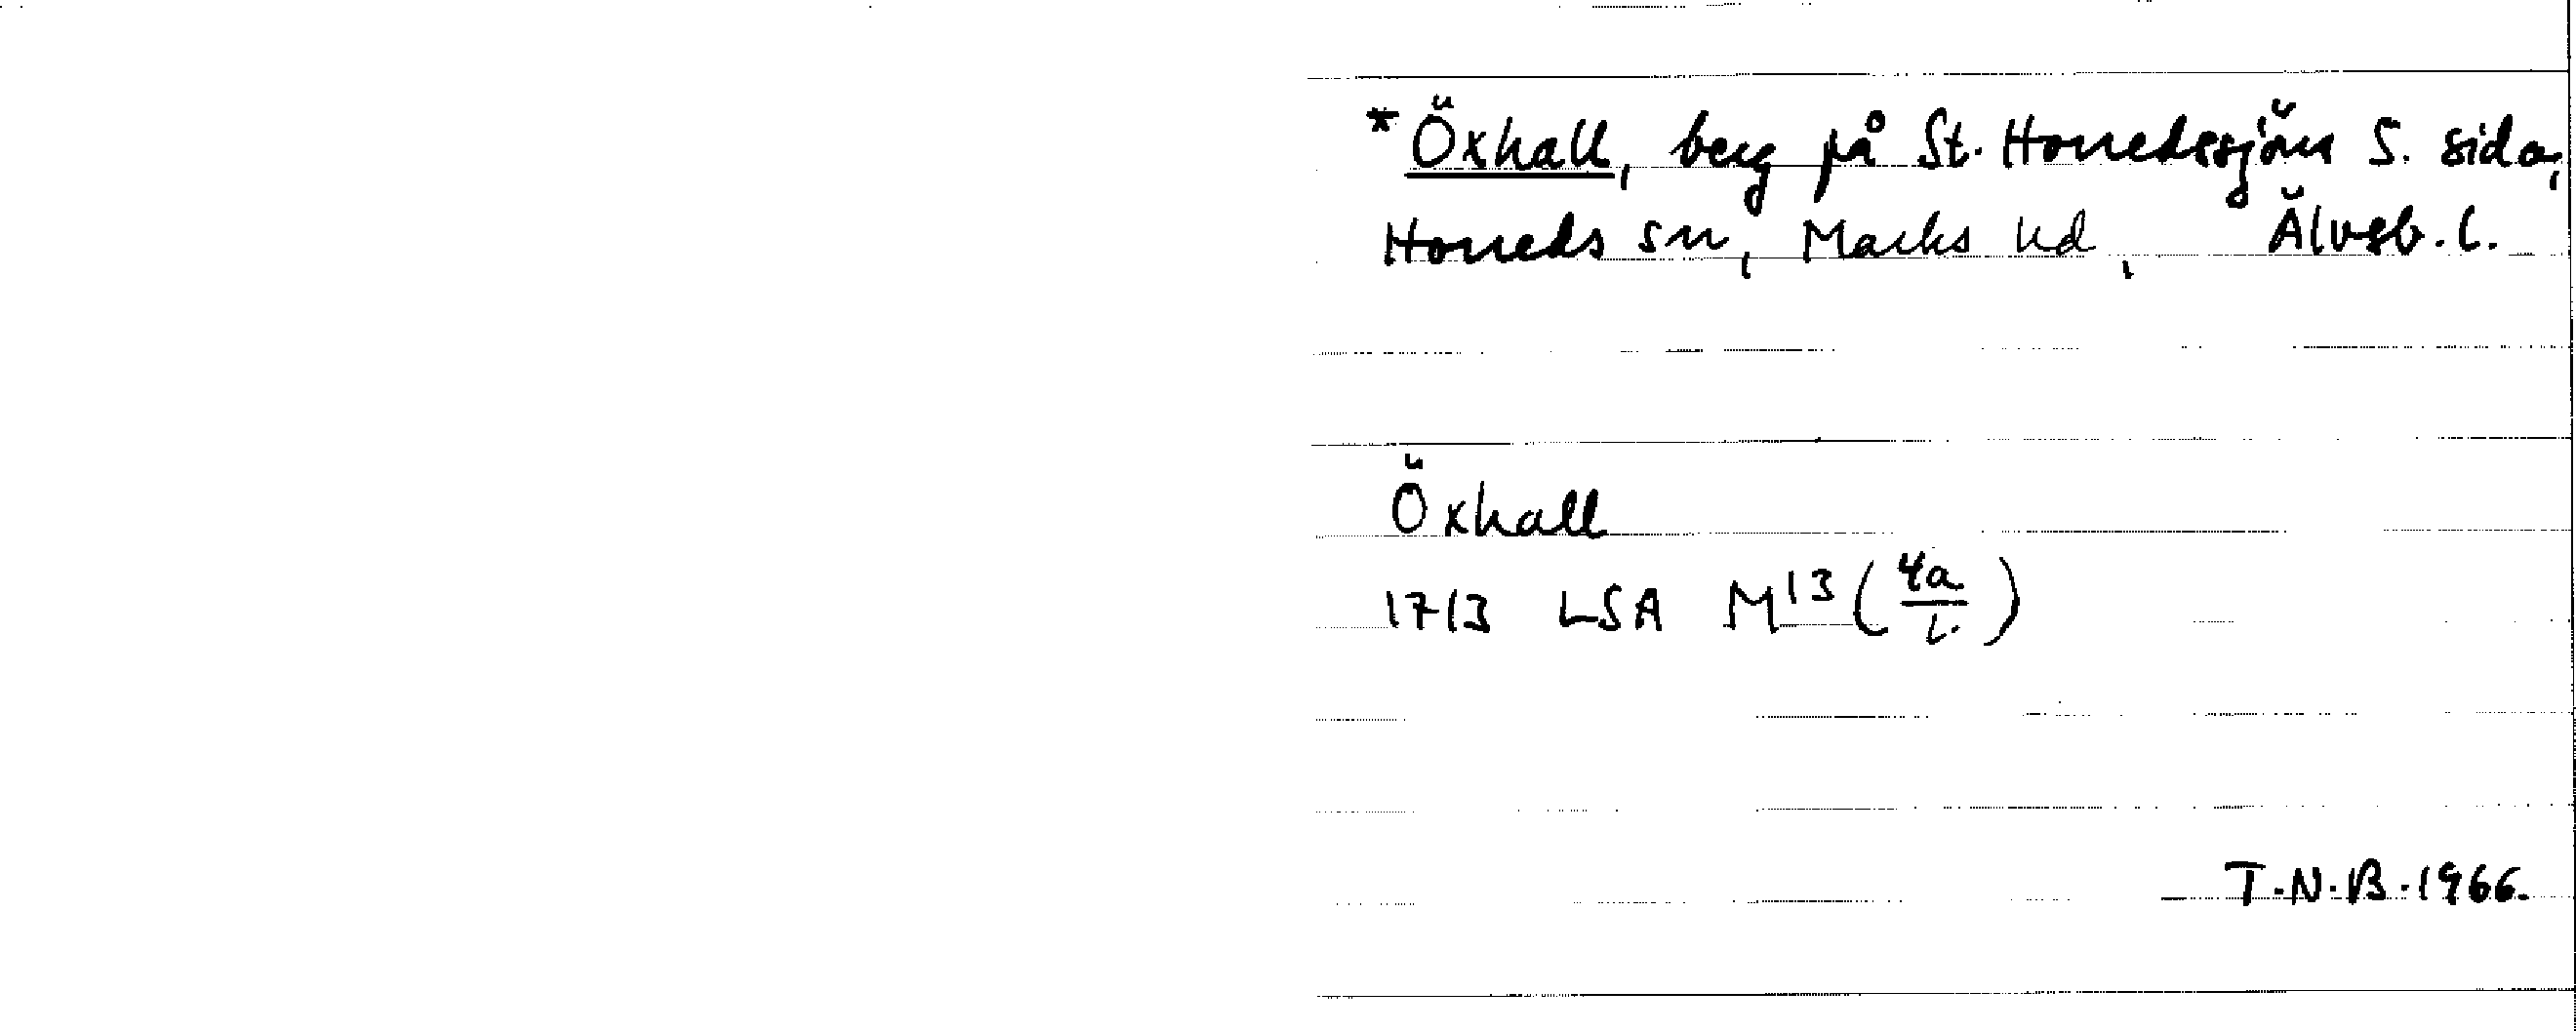 *Öxhall, berg på St. Horredssjöns S. sida,
Horreds sn, Marks hd, Älvsb. l.
Öxhall
1713 LSA M13 (4a/1.)
T.N.B. 1966.